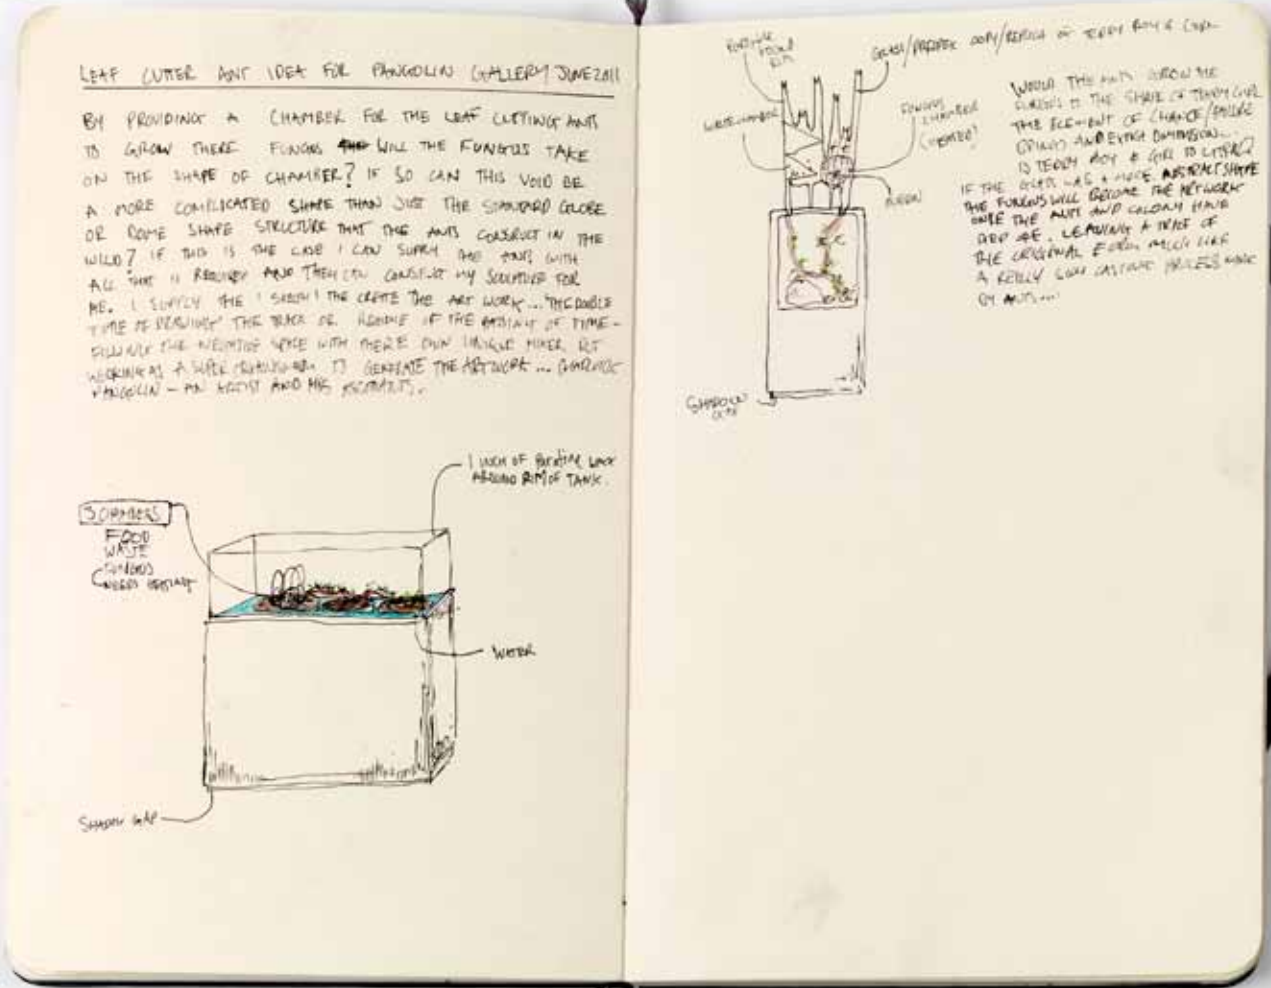 LEAF CUTTER ANT IDEA FOR PANGOLIN GALLERY JUNE 2011
BY PROVIDING A CHAMBER FOR THE LEAF CUTTING ANTS
TO GROW THERE FUNGUS WILL THE FUNGUS TAKE
ON THE SHAPE OF CHAMBER? IF SO CAN THIS VOID BE
A MORE COMPLICATED SHAPE THAN JUST THE STANDARD GLOBE
OR DOME SHAPE STRUCTURE THAT THE ANTS CONSTRUCT IN THE
WILD? IF THIS IS THE CASE I CAN SUPPLY THE ANTS WITH
ALL THAT IS REQUIRED AND THEY CAN CONSTRUCT MY SCULPTURE FOR
ME. I SUPPLY THE THE CREATE THE ART WORK... THE DOUBLE
THE TRACK OR OF THE OF TIME -
THE NEGATIVE SPACE WITH THERE OWN UNIQUE
WORKING AS A SUPER TO GENERATE THE ARTWORK...
PANGOLIN - AN ARTIST AND HIS ASSISTANTS.
1 INCH OF AROUND RIM OF TANK.
3 CHAMBERS
FOOD
WASTE
FUNGUS
NEEDS HEATING
WATER
SHADOW GAP
GLASS/PERSPEX COPY/REPLICA OF TERRY BOY & GIRL
FUNGUS
CHAMBER
(HEATED)
SHADOW
GAP
WOULD THE ANTS GROW THE
FUNGUS TO THE SHAPE OF TERRY GIRL
THE ELEMENT OF CHANCE/FAILURE
AND EXTRA DIMENSION...
IS TERRY BOY & GIRL TO LITERAL?
IF THE GLASS WAS A MORE ABSTRACT SHAPE
THE FUNGUS WILL BECOME THE ARTWORK
ONCE THE ANTS AND COLONY HAVE
LEAVING A TRACE OF
THE ORIGINAL FORM MUCH LIKE
A REALLY SLOW CASTING PROCESS MADE
BY ANTS...